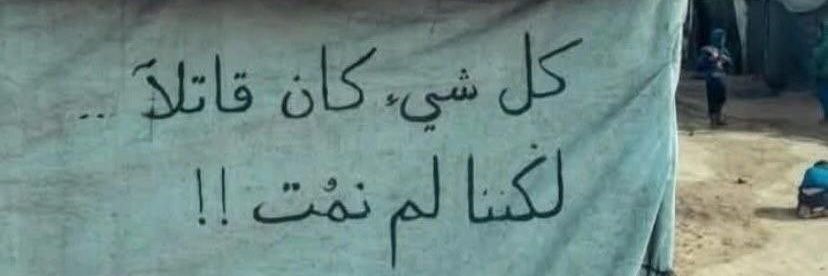 كل شيء كان قاتلاً ..
لكننا لم نمُت !!